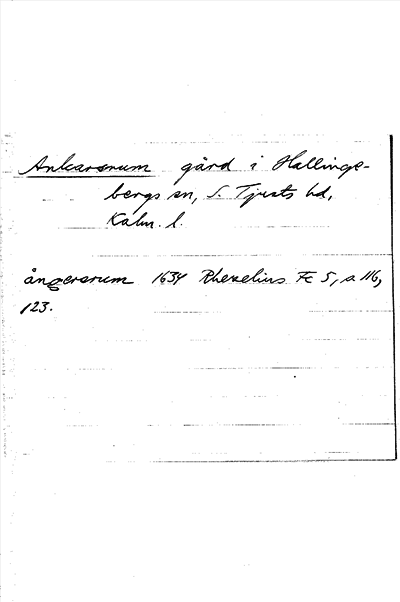 Ankarsrum gård i Hallinge-
bergs sn, S. Tjusts hd,
Kalm. l.
ångersrum 1634 Rhezelius Fc 5, s. 116,
123.